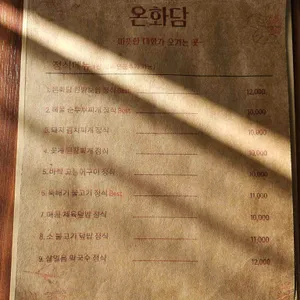 온화담
따뜻한 대화가 오가는 곳
정식메뉴
1. 정식 12,000
2. 해물 순두부찌개 정식 Best 10,000
3. 돼지 김치찌개 정식 10,000
4. 꽃게 된장찌개 정식 10,000
5. 바싹 고등어구이 정식 11,000
6. 뚝배기 불고기 정식 Best 11,000
7. 매콤 제육덮밥 정식 10,000
8. 소 불고기 덮밥 정식 11,000
9. 막국수 정식 12,000